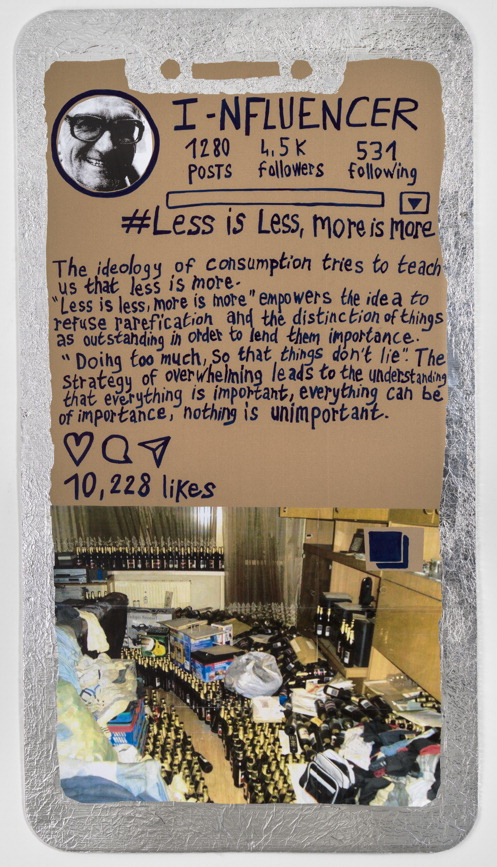 I-NFLUENCER
1280 4,5K 531
POSTS followers following
#Less is Less, more is more
The ideology of consumption tries to teach
us that less is more.
"Less is less, more is more" empowers the idea to
refuse rarefication and the distinction of things
as outstanding in order to lend them importance.
"Doing too much, so that things don't lie". The
strategy of overwhelming leads to the understanding
that everything is important, everything can be
of importance, nothing is unimportant.
10,228 likes